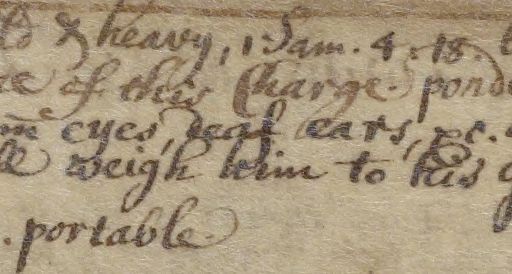 & heavy, 1 Sam. 4. 18.
of this Charge. pond
eyes, deaf ears, &c.
weigh him to his
. portable.